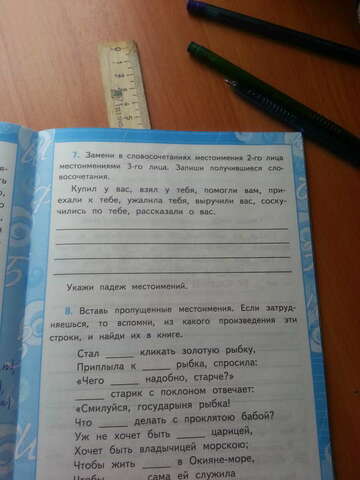 7. Замени в словосочетаниях местоимения 2-го лица
местоимениями 3-го лица. Запиши получившиеся сло-
восочетания.
Купил у вас, взял у тебя, помогли вам, при-
ехали к тебе, ужалила тебя, выручили вас, соску-
чились по тебе, рассказали о вас.
Укажи падеж местоимений.
8. Вставь пропущенные местоимения. Если затруд-
няешься, то вспомни, из какого произведения эти
строки, и найди их в книге.
Стал _____ кликать золотую рыбку,
Приплыла к _____ рыбка, спросила:
«Чего _____ надобно, старче?»
_____ старик с поклоном отвечает:
«Смилуйся, государыня рыбка!
Что _____ делать с проклятою бабой?
Уж не хочет быть _____ царицей,
Хочет быть владычицей морскою;
Чтобы жить _____ в Окияне-море,
Чтобы _____ сама ей служила